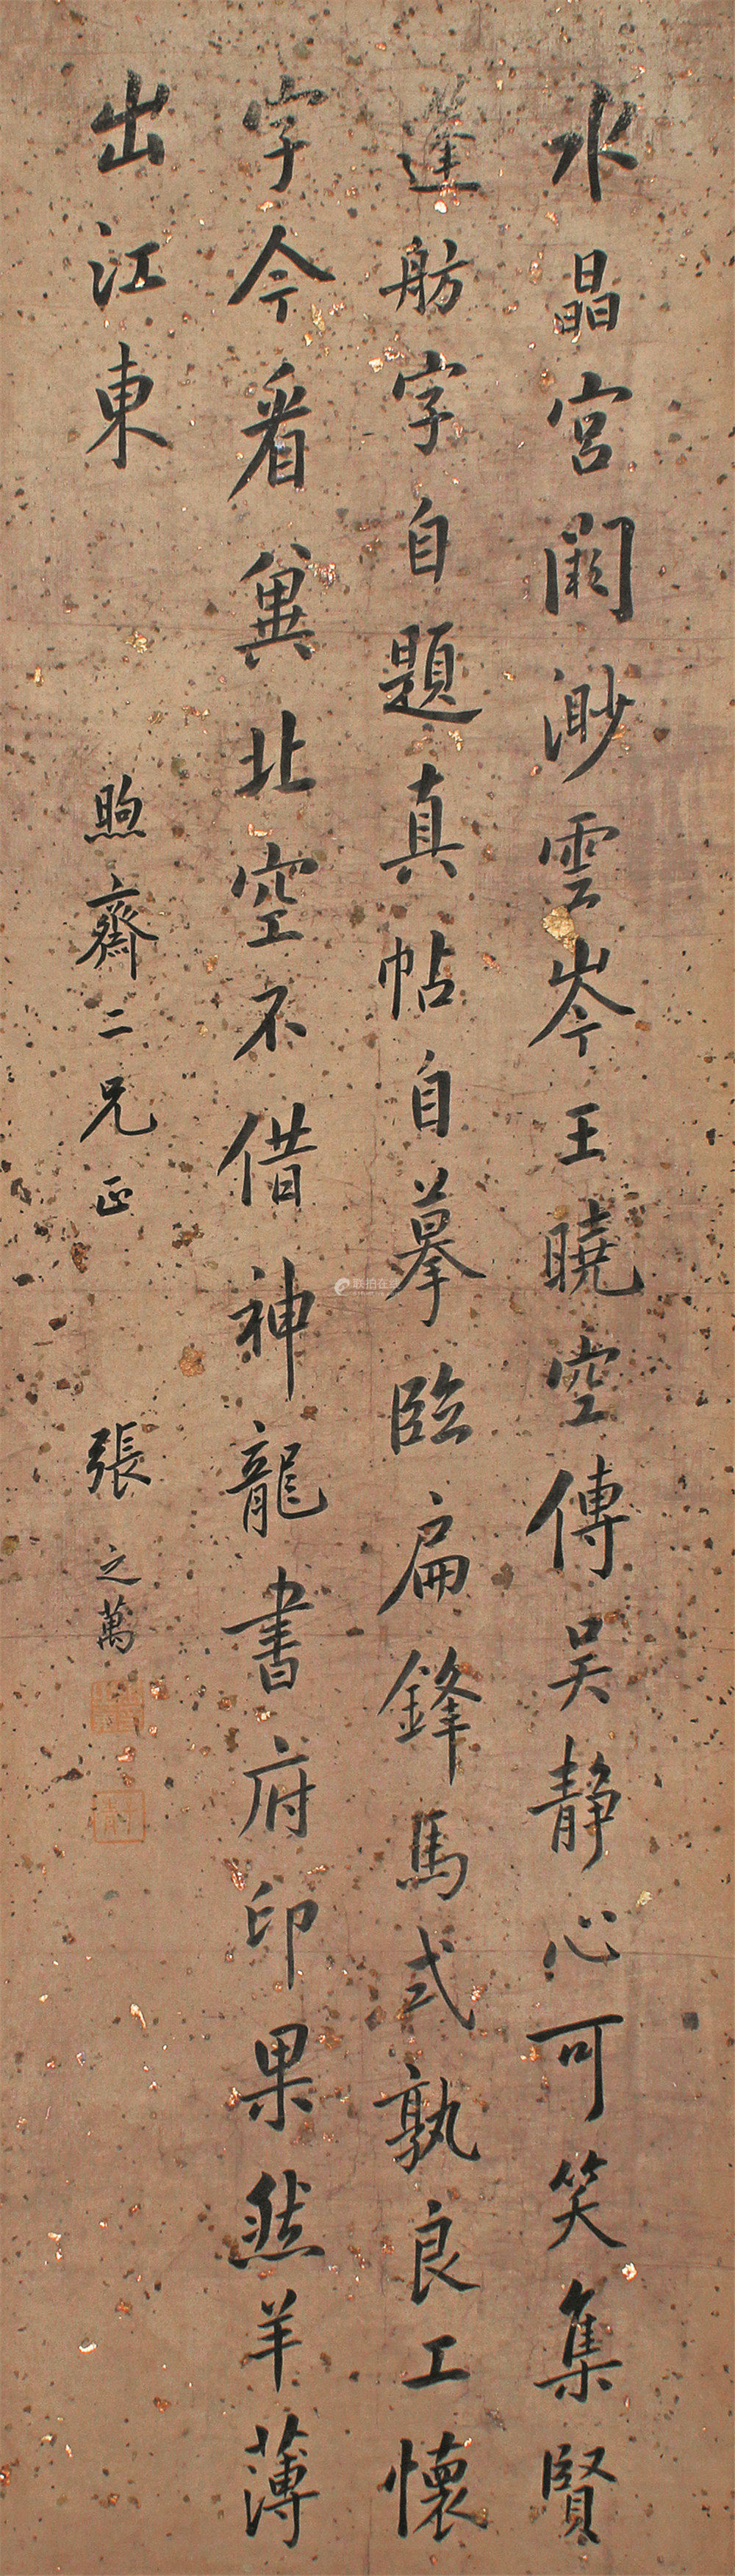 水晶宮闕渺雲岑王曉空傳吴静心可笑集賢
蓬舫字自題真帖自摹臨扁鋒馬式孰良工懷
字今看冀北空不借神龍書府印果然羊薄
出江東
煦齋二兄正
張之萬
联拍在线